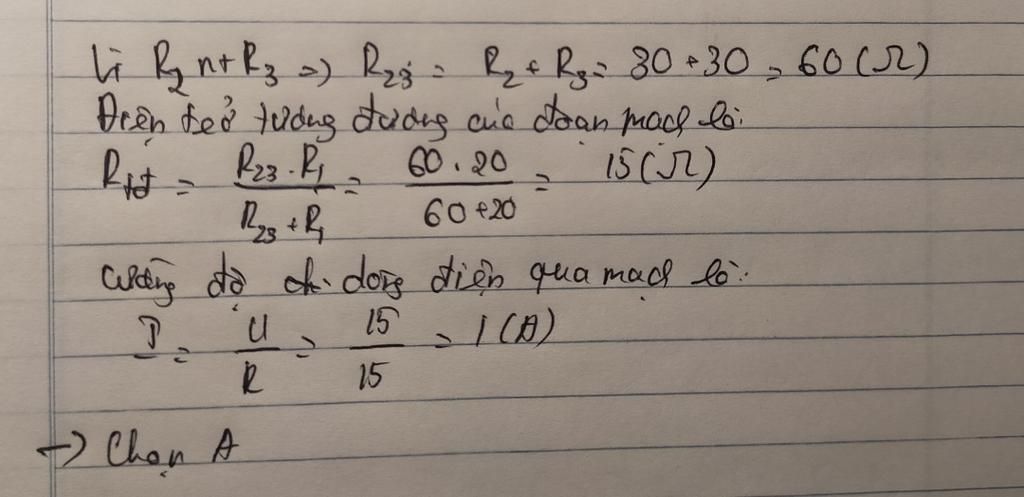 Vì R₂ nt R₃ => R₂₃ = R₂ + R₃ = 30 + 30 = 60 (Ω)
Điện trở tương đương của đoạn mạch là:
Rtđ = (R₂₃ . R₁)/(R₂₃ + R₁) = (60 . 20)/(60 + 20) = 15 (Ω)
Cường độ dòng điện qua mạch là:
I = U/R = 15/15 = 1 (A)
→ Chọn A